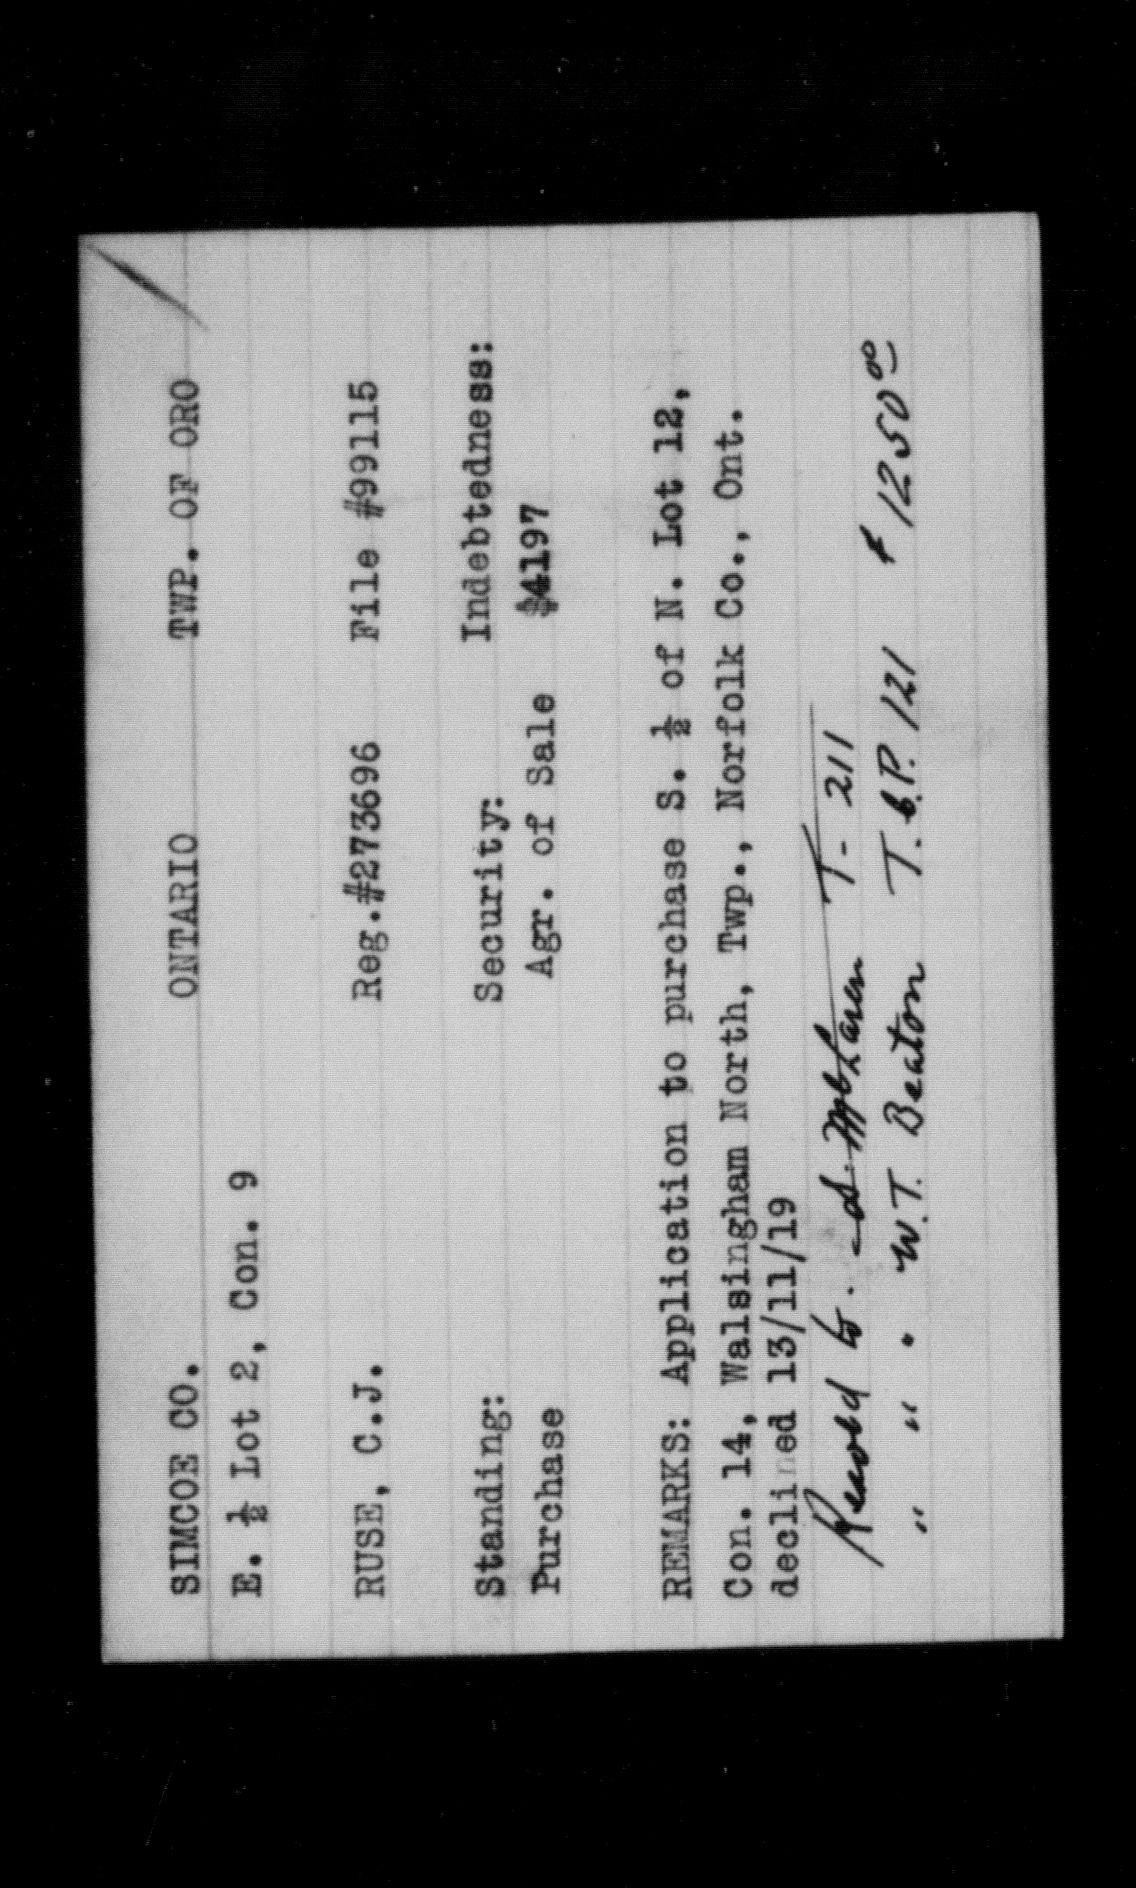 SIMCOE CO. ONTARIO TWP. OF ORO
E. ½ Lot 2, Con. 9
RUSE, C.J. Reg.#273696 File #99115
Standing: Security: Indebtedness:
Purchase Agr. of Sale $4197
REMARKS: Application to purchase S. ½ of N. Lot 12,
Con. 14, Walsingham North, Twp., Norfolk Co., Ont.
declined 13/11/19
Resold to. McLaren T- 211
" " . W.T. Beaton T. P. 121 $ 1250 00